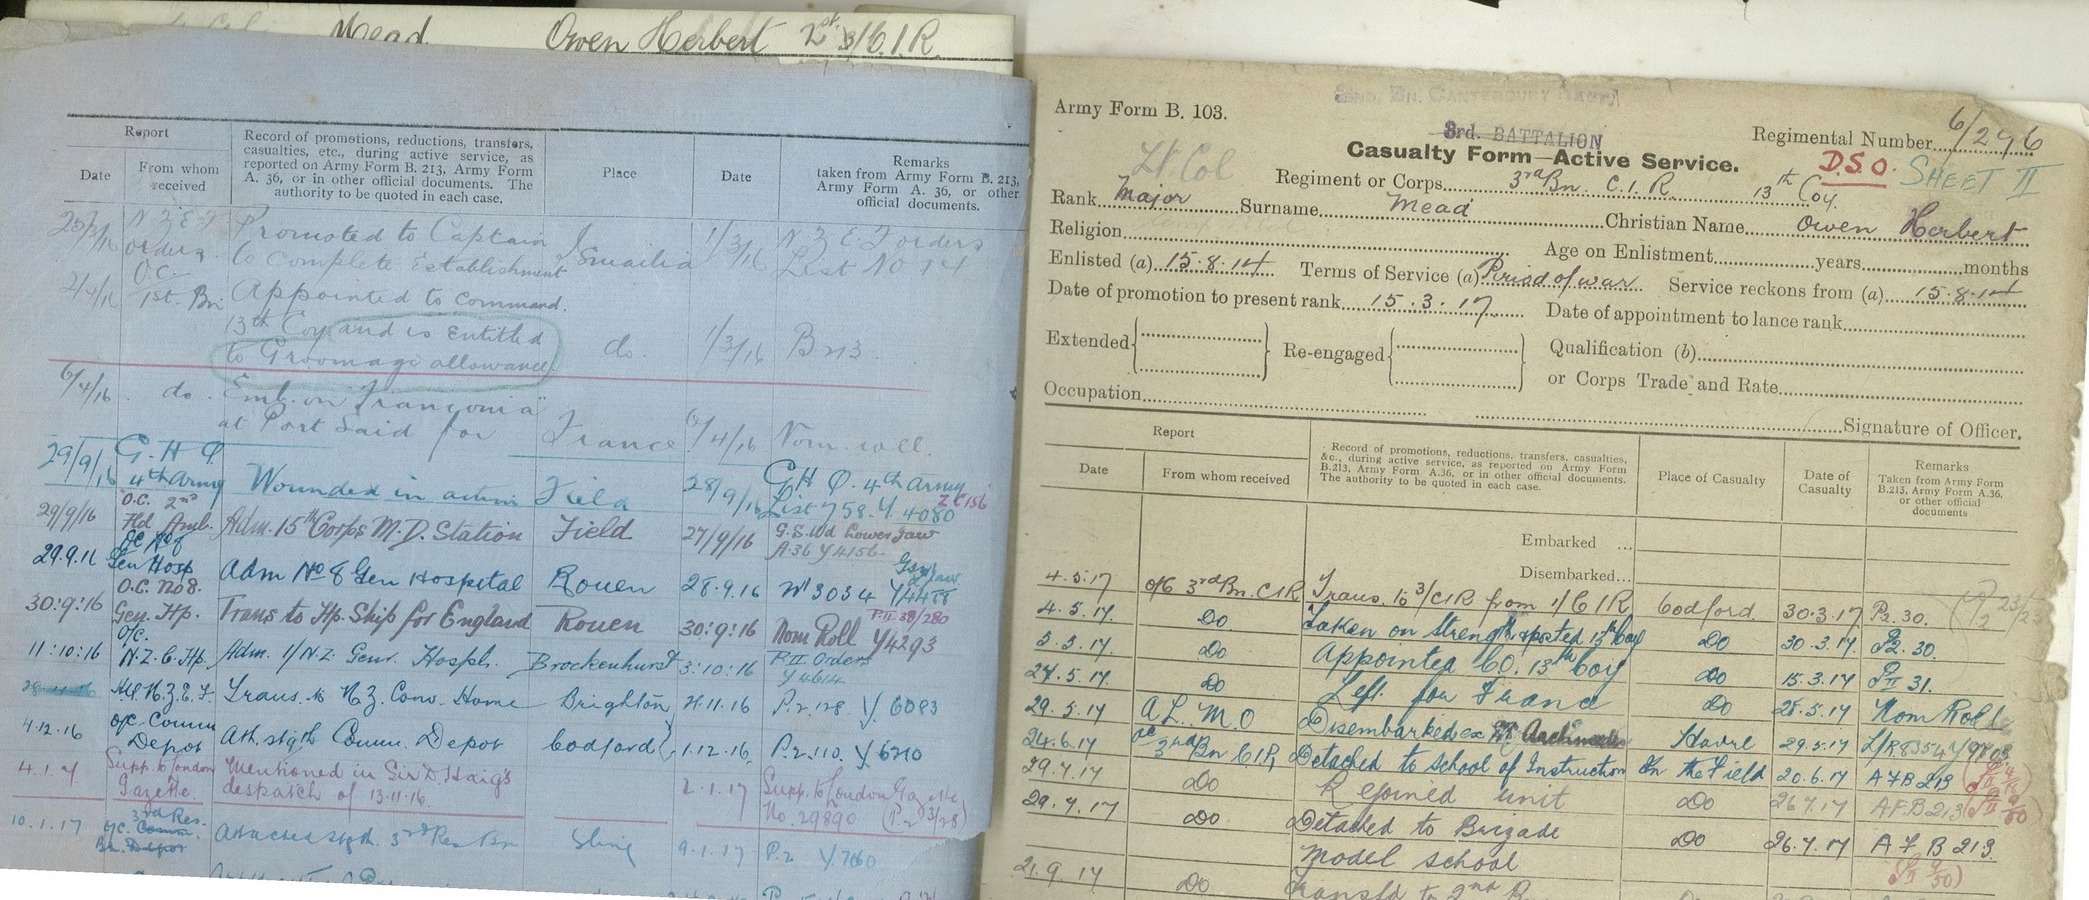 Mead Owen Herbert 2nd 3/C.I.R.
Report
Date
From whom received
Record of promotions, reductions, transfers, casualties, etc., during active service, as reported on Army Form B. 213, Army Form A. 36, or in other official documents. The authority to be quoted in each case.
Place
Date
Remarks taken from Army Form B. 213, Army Form A. 36, or other official documents.
N Z E F orders Promoted to Captain to complete Establishment Ismailia 1/3/16 N Z E F orders List No 14
2/4/16 O.C. 1st. Bn Appointed to command. 13th Coy and is entitled to Groomage allowance do. 1/3/16
6/4/16 do. Emb. on "Franconia" at Port Said for France 6/4/16 Nom. roll.
29/9/16 G.H.Q. 4th Army Wounded in action Field 28/9/16 G H Q. 4th Army List 758. Y. 4080
29/9/16 O.C. 2nd Fld Amb. Adm. 15th Corps M.D. Station Field 27/9/16 G.S.Wd Lower Jaw A.36 Y4156
29.9.16 Gen Hosp Adm No 8 Gen Hospital Rouen 28.9.16 W 3034 Y4478
30:9:16 O.C. No 8. Gen. Hp. Trans to Hp. Ship for England Rouen 30:9:16 Nom Roll Y4293
11:10:16 O/C. N.Z.G.Hp. Adm. 1/N.Z. Genr. Hospl. Brockenhurst 3:10:16 P.II Orders Y4614
Hq N.Z.E.F. Trans. to N Z. Conv. Home Brighton 21.11.16 P.2.128 Y. 6083
4.12.16 O/C Comm Depot Att. stgth Comm. Depot Codford 1.12.16. P.2.110. Y. 6210
4.1.17 Supp. to London Gazette. Mentioned in Sir D. Haig's despatch of 13.11.16. 2.1.17 Supp. to London Gazette No. 29890
10.1.17 3rd Res. Attached stgth. 3rd Res Bn Sling 9.1.17 P.2 Y.760
Army Form B. 103.
2ND. BN. CANTERBURY REGT.
3rd. BATTALION
Casualty Form—Active Service.
Regimental Number 6/296
D.S.O. SHEET II
Lt Col
Regiment or Corps 3rd Bn. C.I.R. 13th Coy.
Rank Major Surname Mead Christian Name Owen Herbert
Religion Age on Enlistment years months
Enlisted (a) 15.8.14 Terms of Service (a) Period of war Service reckons from (a) 15.8.14
Date of promotion to present rank 15.3.17 Date of appointment to lance rank
Extended Re-engaged Qualification (b)
or Corps Trade and Rate
Occupation
Signature of Officer.
Report
Date
From whom received
Record of promotions, reductions, transfers, casualties, &c., during active service, as reported on Army Form B.213, Army Form A.36, or in other official documents. The authority to be quoted in each case.
Place of Casualty
Date of Casualty
Remarks Taken from Army Form B.213, Army Form A.36, or other official documents
Embarked ...
Disembarked...
4.5.17 O/C 3rd Bn. C.I.R Trans. to 3/CIR from 1/C I R, Codford. 30.3.17 P2. 30.
4.5.17. Do Taken on Strength & posted 13th Coy Do 30.3.17. P2. 30.
5.5.17. Do Appointed C.O. 13th Coy Do 15.3.17 PII 31.
27.5.17. Do Left for France Do 28.5.17 Nom Roll
29.5.17 A.L.M.O Disembarked ex Havre 29.5.17
24.6.17 O/C 3rd Bn C.I.R, Detached to School of Instruction In the Field 20.6.17 A F B 213
29.7.17 Do Rejoined unit Do 26.7.17 A.F.B 213
29.7.17 Do Detached to Brigade Model school Do 26.7.17 A F B 213.
21.9.17 Do Transfd to 2nd